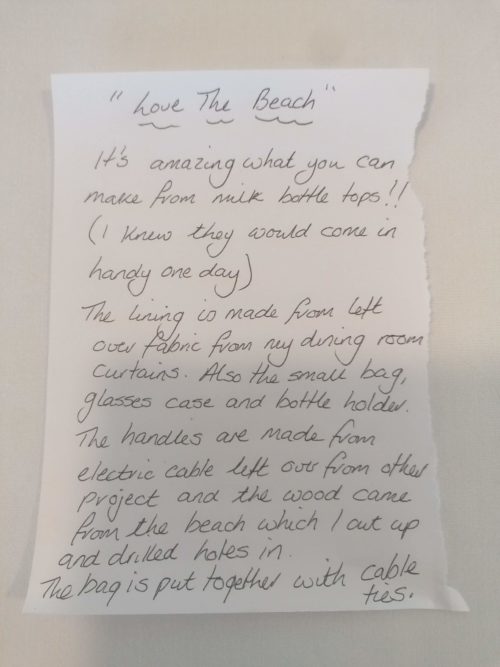 "Love The Beach"
It's amazing what you can
make from milk bottle tops!!
(I knew they would come in
handy one day)
The lining is made from left
over fabric from my dining room
curtains. Also the small bag,
glasses case and bottle holder.
The handles are made from
electric cable left over from other
project and the wood came
from the beach which I cut up
and drilled holes in.
The bag is put together with cable
ties.